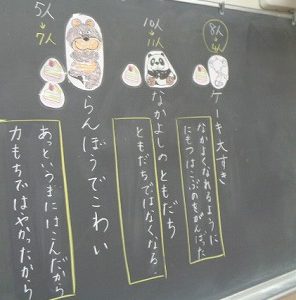 8人
↓
4人
ケーキ大すき
なかよくなれるように
にもつはこぶのをがんばった
10人
↓
11人
なかよしのともだち
ともだちではなくなる。
5人
↓
7人
らんぼうでこわい
あっというまにはこんだから
力もちではやかったから